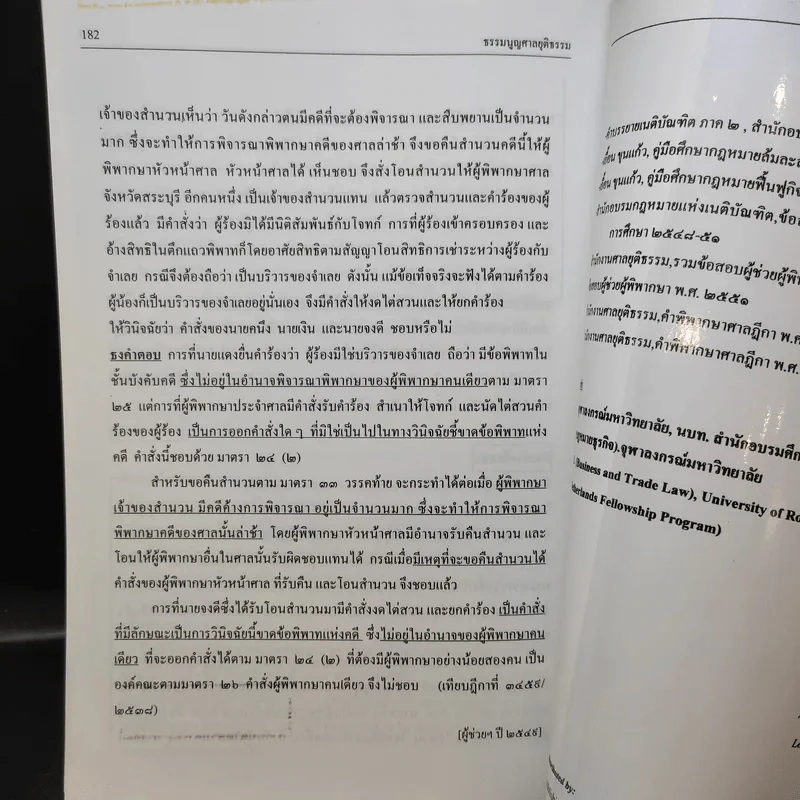 182
ธรรมนูญศาลยุติธรรม
เจ้าของสำนวนเห็นว่า วันดังกล่าวตนมีคดีที่จะต้องพิจารณา และสืบพยานเป็นจำนวน
มาก ซึ่งจะทำให้การพิจารณาพิพากษาคดีของศาลล่าช้า จึงขอคืนสำนวนคดีนี้ให้ผู้
พิพากษาหัวหน้าศาล หัวหน้าศาลได้ เห็นชอบ จึงสั่งโอนสำนวนให้ผู้พิพากษาศาล
จังหวัดสระบุรี อีกคนหนึ่ง เป็นเจ้าของสำนวนแทน แล้วตรวจสำนวนและคำร้องของผู้
ร้องแล้ว มีคำสั่งว่า ผู้ร้องมิได้มีนิติสัมพันธ์กับโจทก์ การที่ผู้ร้องเข้าครอบครอง และ
อ้างสิทธิในตึกแถวพิพาทก็โดยอาศัยสิทธิตามสัญญาโอนสิทธิการเช่าระหว่างผู้ร้องกับ
จำเลย กรณีจึงต้องถือว่า เป็นบริวารของจำเลย ดังนั้น แม้ข้อเท็จจริงจะฟังได้ตามคำร้อง
ผู้น้องก็เป็นบริวารของจำเลยอยู่นั่นเอง จึงมีคำสั่งให้งดไต่สวนและให้ยกคำร้อง
ให้วินิจฉัยว่า คำสั่งของนายคนึง นายเงิน และนายจงดี ชอบหรือไม่
ธงคำตอบ การที่นายแดงยื่นคำร้องว่า ผู้ร้องมิใช่บริวารของจำเลย ถือว่า มีข้อพิพาทใน
ชั้นบังคับคดี ซึ่งไม่อยู่ในอำนาจพิจารณาพิพากษาของผู้พิพากษาคนเดียวตาม มาตรา
๒๕ แต่การที่ผู้พิพากษาประจำศาลมีคำสั่งรับคำร้อง สำเนาให้โจทก์ และนัดไต่สวนคำ
ร้องของผู้ร้อง เป็นการออกคำสั่งใด ๆ ที่มิใช่เป็นไปในทางวินิจฉัยชี้ขาดข้อพิพาทแห่ง
คดี คำสั่งนี้ชอบด้วย มาตรา ๒๔ (๒)
สำหรับขอคืนสำนวนตาม มาตรา ๓๓ วรรคท้าย จะกระทำได้ต่อเมื่อ ผู้พิพากษา
เจ้าของสำนวน มีคดีค้างการพิจารณา อยู่เป็นจำนวนมาก ซึ่งจะทำให้การพิจารณา
พิพากษาคดีของศาลนั้นล่าช้า โดยผู้พิพากษาหัวหน้าศาลมีอำนาจรับคืนสำนวน และ
โอนให้ผู้พิพากษาอื่นในศาลนั้นรับผิดชอบแทนได้ กรณีเมื่อมีเหตุที่จะขอคืนสำนวนได้
คำสั่งของผู้พิพากษาหัวหน้าศาล ที่รับคืน และโอนสำนวน จึงชอบแล้ว
การที่นายจงดีซึ่งได้รับโอนสำนวนมามีคำสั่งงดไต่สวน และยกคำร้อง เป็นคำสั่ง
ที่มีลักษณะเป็นการวินิจฉัยนี้ขาดข้อพิพาทแห่งคดี ซึ่งไม่อยู่ในอำนาจของผู้พิพากษาคน
เดียว ที่จะออกคำสั่งได้ตาม มาตรา ๒๔ (๒) ที่ต้องมีผู้พิพากษาอย่างน้อยสองคน เป็น
องค์คณะตามมาตรา ๒๖ คำสั่งผู้พิพากษาคนเดียว จึงไม่ชอบ (เทียบฎีกาที่ ๓๔๕๙/
๒๕๓๘)
[ผู้ช่วยฯ ปี ๒๕๔๙]
คำบรรยายเนติบัณฑิต ภาค ๒ , สำนักอบ
เอื้อน ขุนแก้ว, คู่มือศึกษากฎหมายล้มละล
เอื้อน ขุนแก้ว, คู่มือศึกษากฎหมายฟื้นฟูกิจ
สำนักอบรมกฎหมายแห่งเนติบัณฑิต,ข้อส
การศึกษา ๒๕๔๘-๕๑
สำนักงานศาลยุติธรรม,รวมข้อสอบผู้ช่วยผู้พิ
สอบผู้ช่วยผู้พิพากษา พ.ศ. ๒๕๕๑
งานศาลยุติธรรม,คำพิพากษาศาลฎีกา พ.ศ
งานศาลยุติธรรม,คำพิพากษาศาลฎีกา พ.ศ.
ฬาลงกรณ์มหาวิทยาลัย, นบท. สำนักอบรมศึก
กฎหมายธุรกิจ).จุฬาลงกรณ์มหาวิทยาลัย
Business and Trade Law), University of Ro
therlands Fellowship Program)